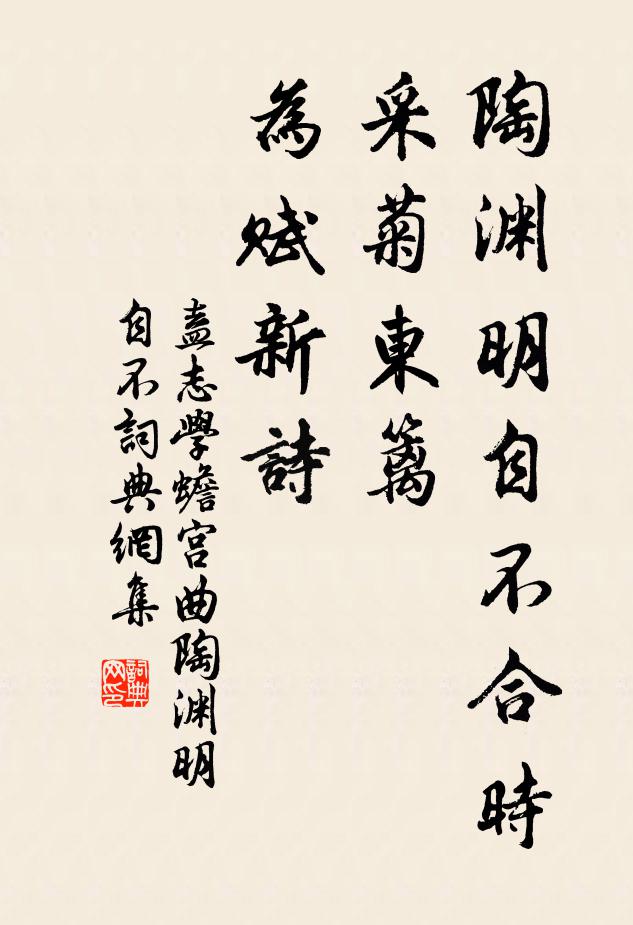 陶渊明自不合時
采菊東籬
為賦新詩
盍志學蟾宮曲陶渊明
自不詞典網集
詞典网印